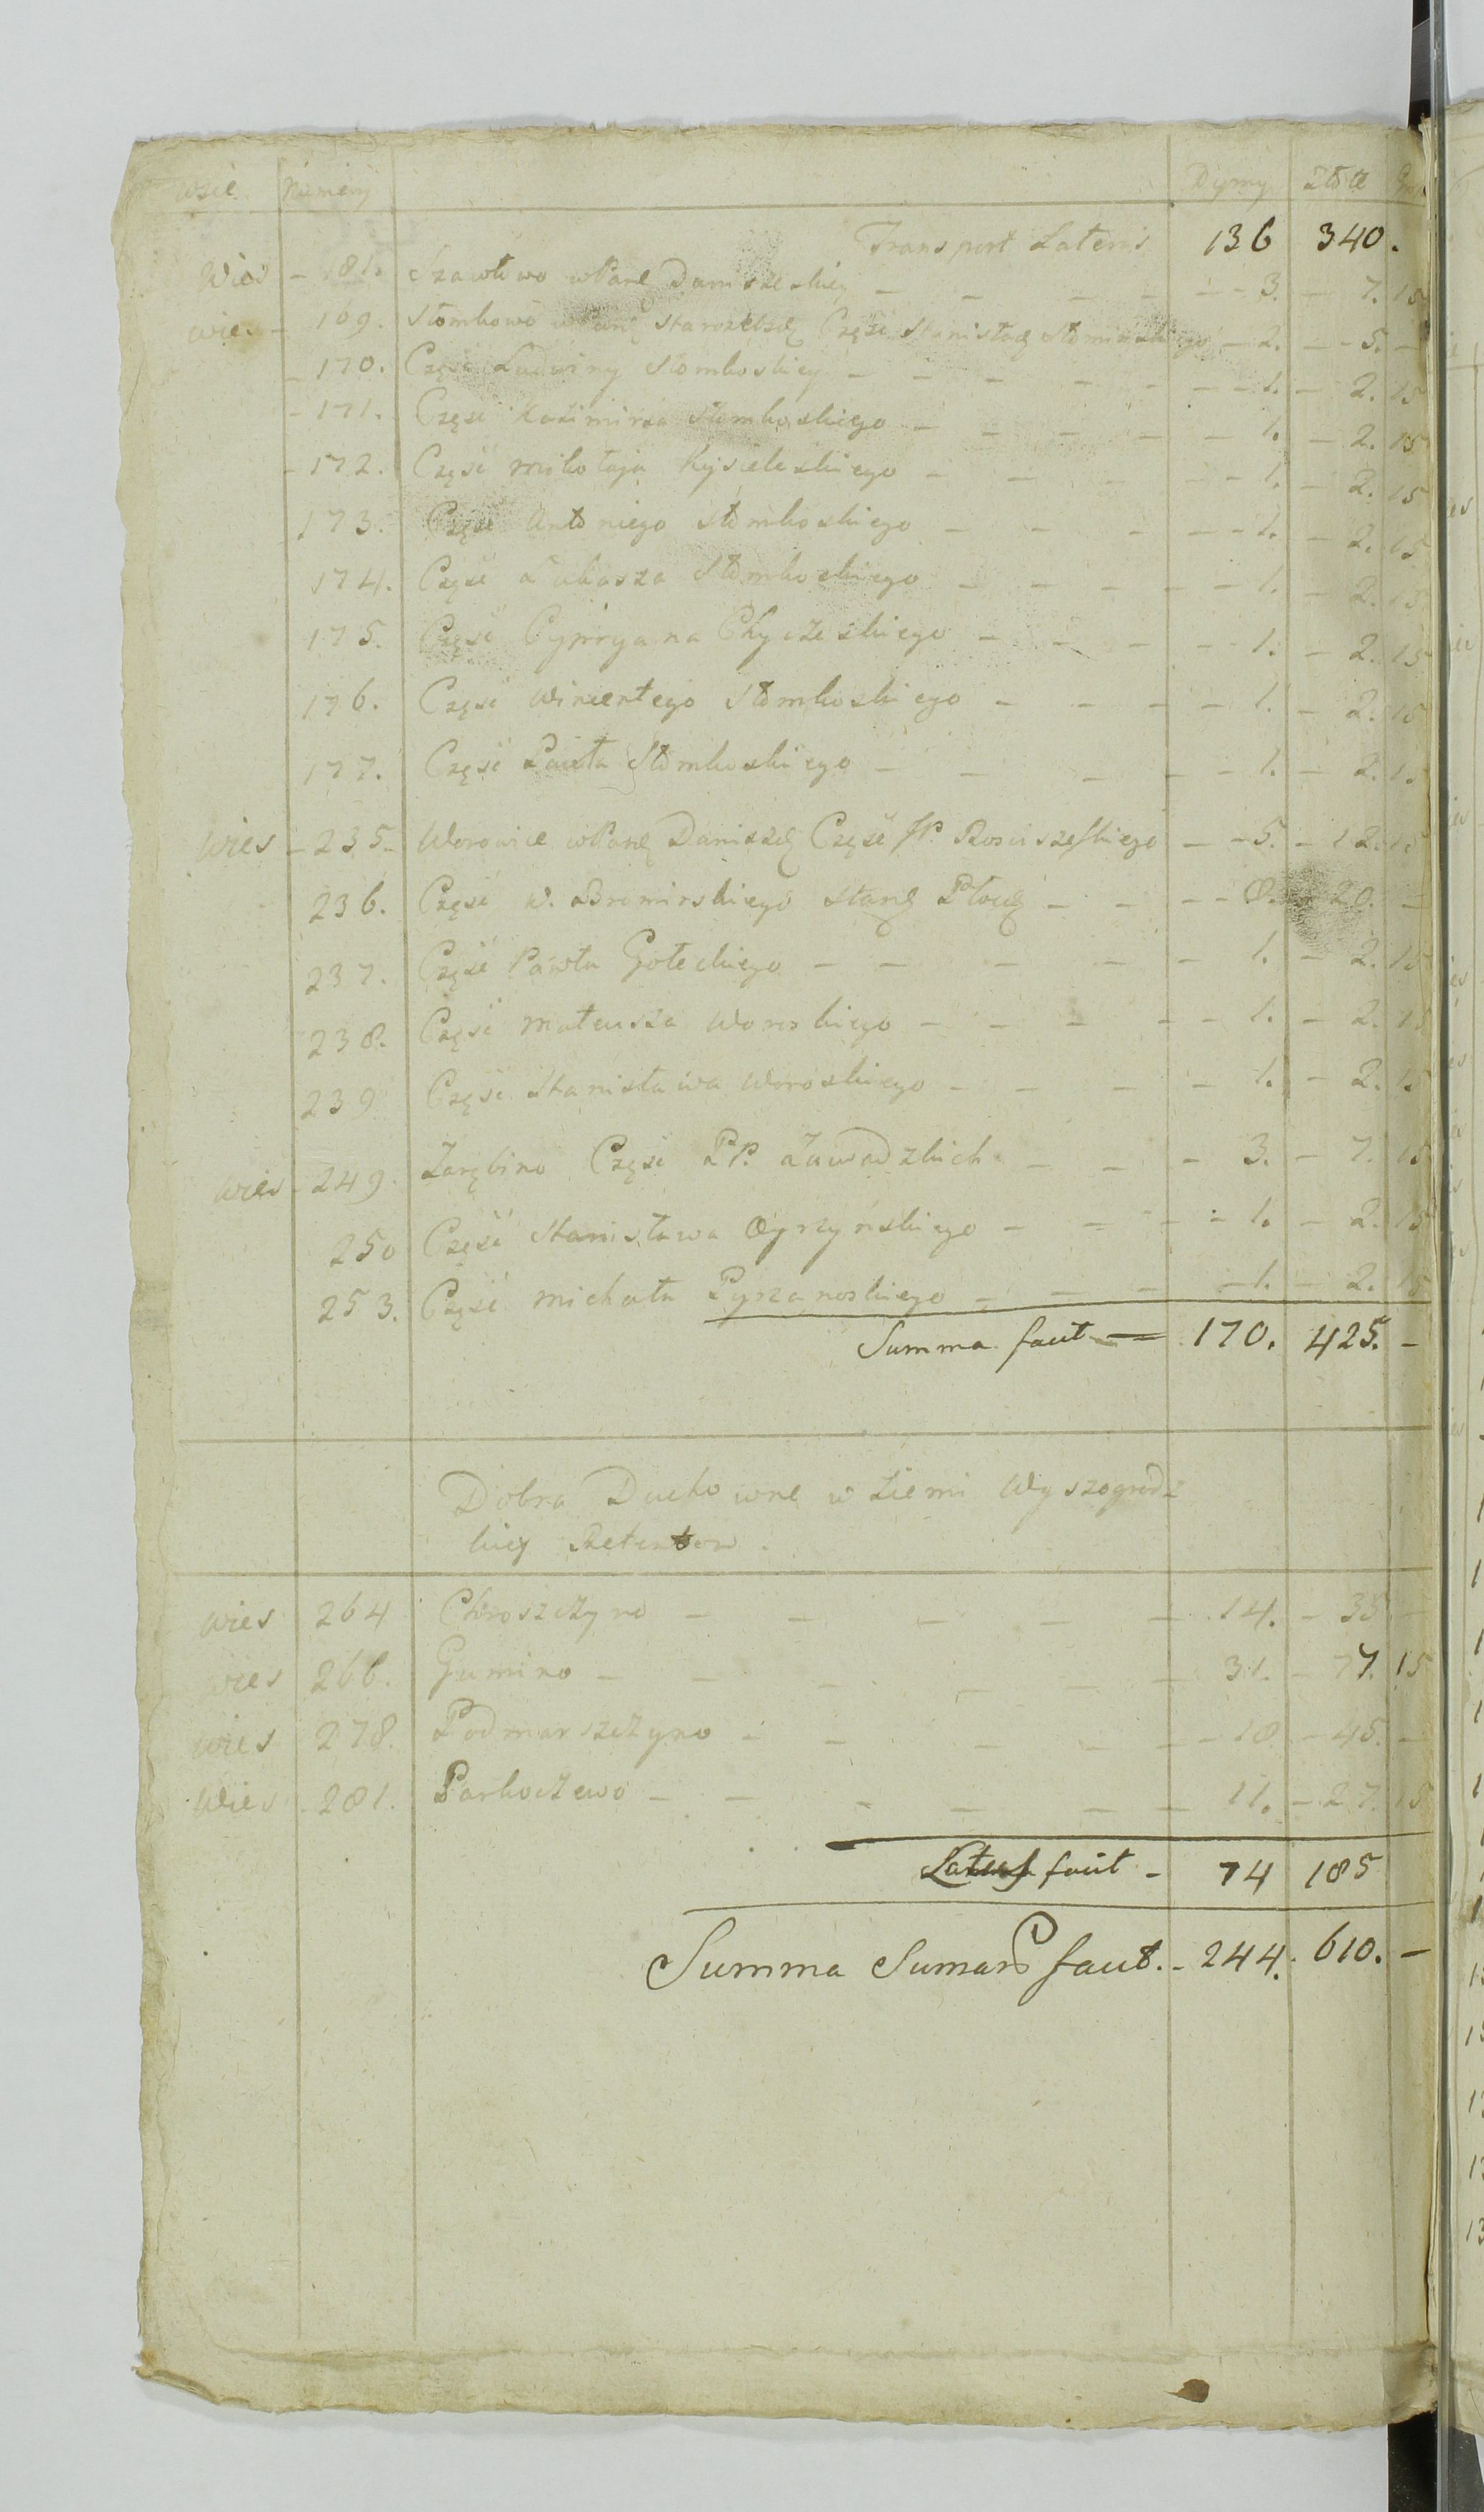 Wsie Numery Dymy Złote Gr.
Transport Lateris 136 340.
Wies - 181. Szawłowo w Par Daniszeskiey - - - 3. - 7. 15
Wies - 169. Słomkowo Część - 2. - 5. -
- 170. Część Ludwiny Słomkoskiey - - - 1. - 2. 15
- 171. Część Kazimirza Słomkoskiego - - - 1. - 2. 15
- 172. Część Mikołaja Kysieleskiego - - - 1. - 2. 15
173. Część Antoniego Słomkoskiego - - - 1. - 2. 15
174. Część Łukasza Słomkoskiego - - - 1. - 2. 15
175. Część Cypryana Chyczeskiego - - - 1. - 2. 15
176. Część Wincentego Słomkoskiego - - - 1. - 2. 15
177. Część Pawła Słomkoskiego - - - 1. - 2. 15
Wies - 235. Worowice w Par Danisz Część JP. Rosciszeskiego - 5. - 12. 15
236. Część W. Bromirskiego - - 8. - 20. -
237. Część Pawła Goleckiego - - - 1. - 2. 15
238. Część Mateusza Woroskiego - - - 1. - 2. 15
239 Część Stanisława Woroskiego - - - 1. - 2. 15
Wies - 249. Zarębino Część PP. Zawadzkich - - 3. - 7. 15
250 Część Stanisława Ogrzyńskiego - - - 1. - 2. 15
253. Część Michała Pyrzanoskiego - - - 1. - 2. 15
Summa facit - 170. 425. -
Dobra Duchowne w Ziemi Wyszogrodz
kiey Retentow.
Wies 264 Chroszczyno - - - 14. - 35 -
Wies 266. Gumino - - - 31. - 77. 15
Wies 278. Podmarszczyno - - - 18 - 45. -
Wies 281. Parkoczewo - - - 11. - 27. 15
facit - 74 185
Summa Sumar facit. - 244. 610. -